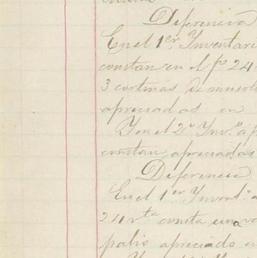 Diferencia
En el 1er. Inventari
constan en el fo 24
3 cortinas de musol
apreciadas en
Y en el 2o Invo. a p
constan apreciadas
Diferencia
En el 1er Invent. a
24 vta consta una v
palio apreciado e